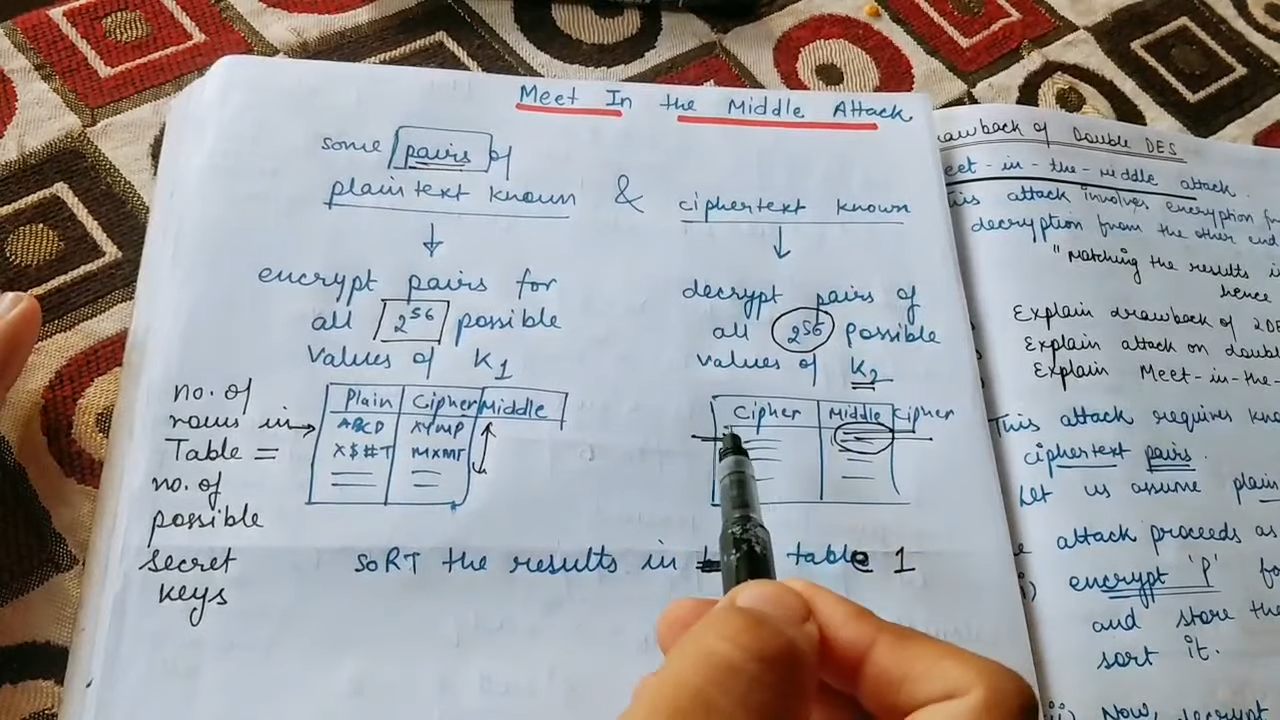 Meet In the Middle Attack
some pairs of
plaintext known & ciphertext known
encrypt pairs for
all 2^56 possible
values of K1
decrypt pairs of
all 2^56 possible
values of K2
no. of
rows in
Table =
no. of
possible
secret
keys
Plain Cipher Middle
ABCD XYMP
X$#T MXMT
Cipher Middle Cipher
SORT the results in table 1
Drawback of Double DES
eet-in-the-middle attack.
this attack involves encryption
decryption from the other end
"Matching the results
hence
Explain drawback of 2D
Explain attack on doubl
Explain Meet-in-the-
This attack requires
ciphertext pairs.
Let us assume plain
attack proceeds as
encrypt 'P' fo
and store the
sort it.
Now, decrypt